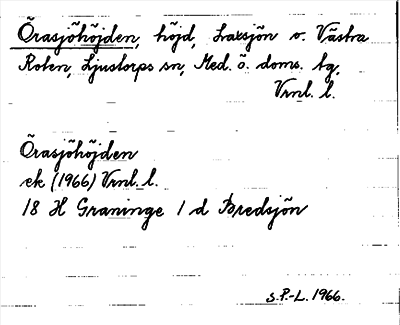 Örasjöhöjden, höjd, Laxsjön o. Västra
Roten, Ljustorps sn, Med. ö. doms. tg,
Vrnl. l.
Örasjöhöjden
ek (1966) Vrnl. l.
18 H Graninge 1 d Bredsjön
S.P.-L. 1966.